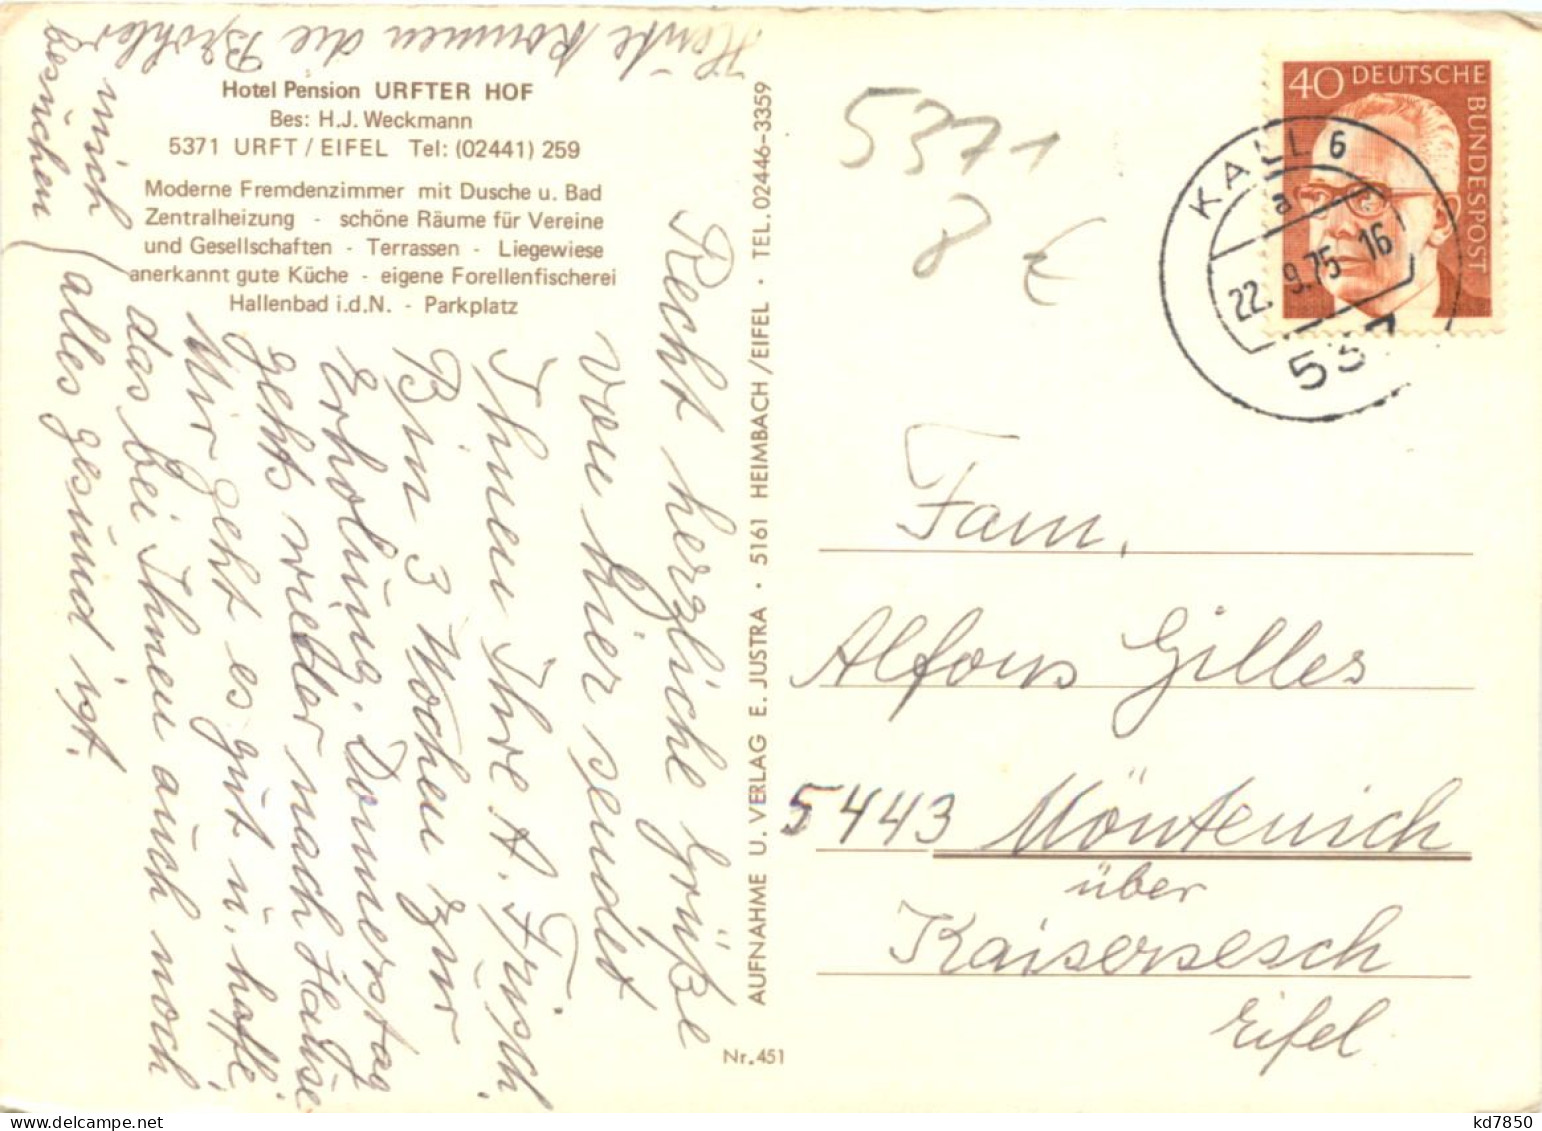 Hotel Pension URFTER HOF
Bes: H.J. Weckmann
5371 URFT / EIFEL Tel: (02441) 259
Moderne Fremdenzimmer mit Dusche u. Bad
Zentralheizung - schöne Räume für Vereine
und Gesellschaften - Terrassen - Liegewiese
anerkannt gute Küche - eigene Forellenfischerei
Hallenbad i.d.N. - Parkplatz
Recht herzliche Grüße
von hier sendet
Ihnen Ihre A. Frisch
Bin 3 Wochen zur
Erholung. Donnerstag
gehts wieder nach Hause
Mir geht es gut u. hoffe
das bei Ihnen auch noch
alles gesund ist.
Heute kommen die Brohler
mich
besuchen
AUFNAHME U. VERLAG E. JUSTRA · 5161 HEIMBACH/EIFEL · TEL. 02446-3359
Nr. 451
5371
8 €
40 DEUTSCHE BUNDESPOST
KALL 6
a
22.9.75 16
537
Fam.
Alfons Gilles
5443 Möntenich
über
Kaisersesch
Eifel
kd7850